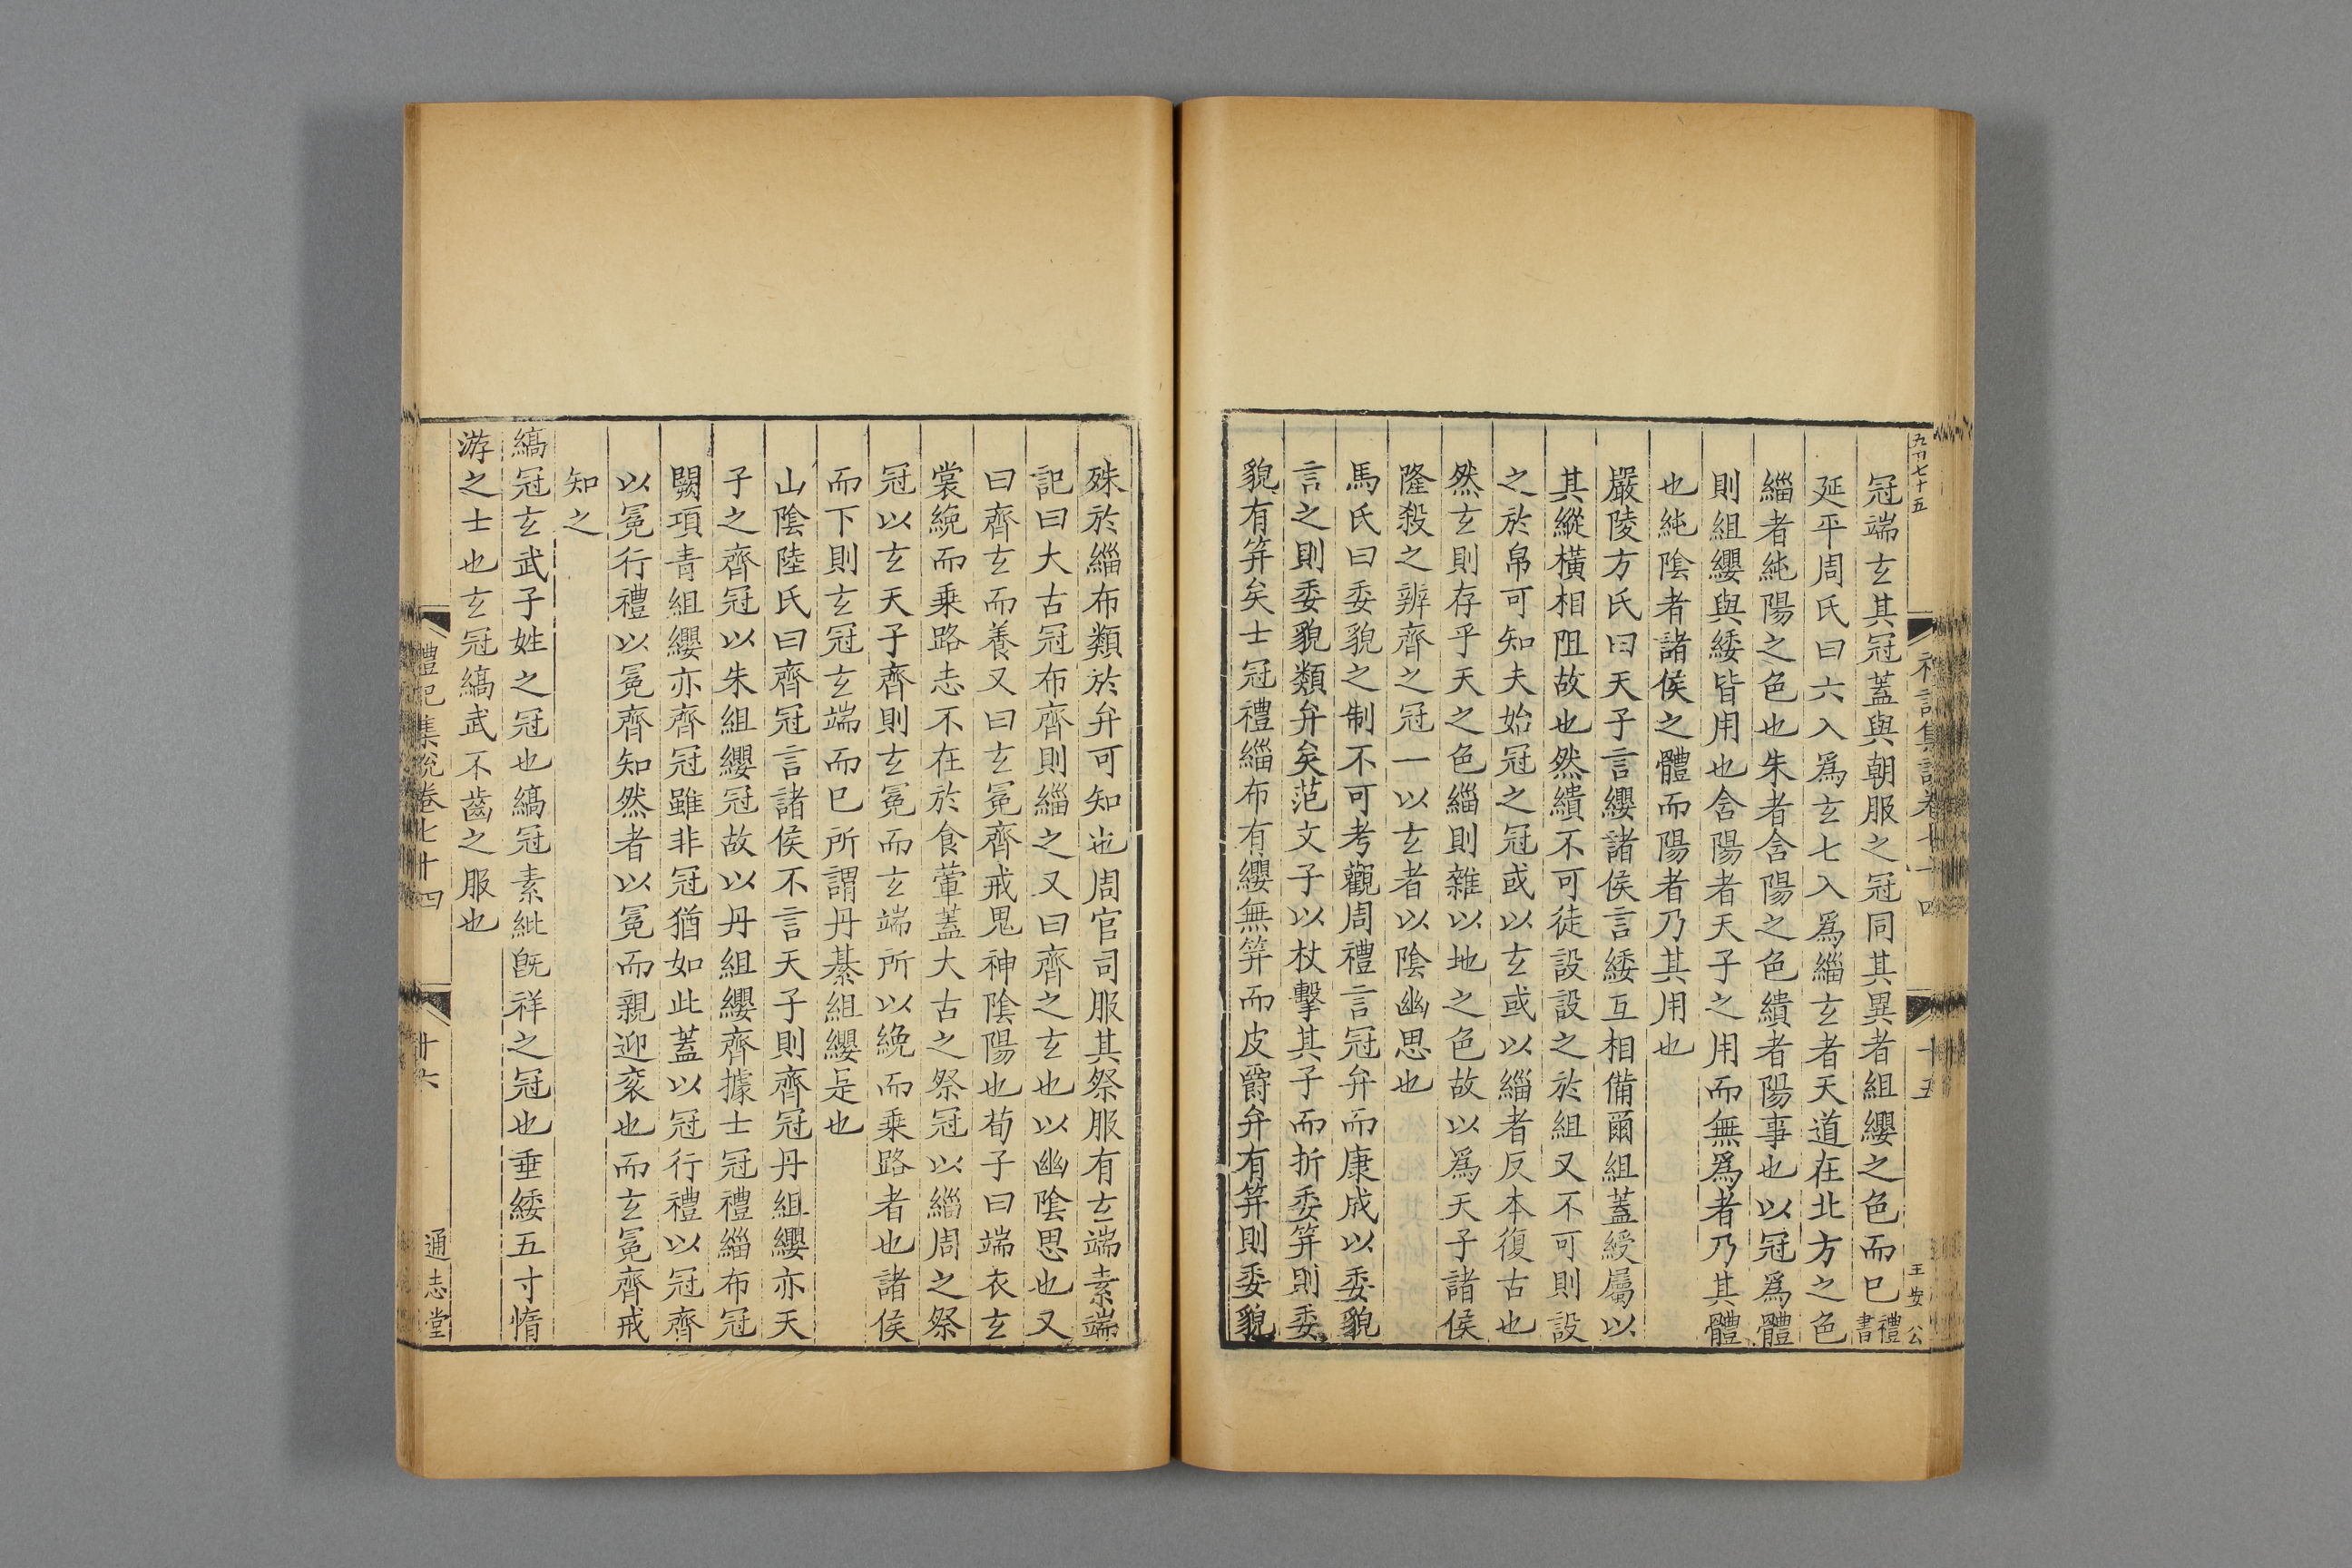 冠端玄其冠蓋與朝服之冠同其異者組纓之色而巳禮書
延平周氏曰六入爲玄七入爲緇玄者天道在北方之色
緇者純陽之色也朱者含陽之色繢者陽事也以冠爲體
則組纓與緌皆用也含陽者天子之用而無爲者乃其體
也純陰者諸侯之體而陽者乃其用也
嚴陵方氏曰天子言纓諸侯言緌互相備爾組蓋綬屬以
其縱橫相阻故也然繢不可徒設設之於組又不可則設
之於帛可知夫始冠之冠或以玄或以緇者反本復古也
然玄則存乎天之色緇則雜以地之色故以爲天子諸侯
隆殺之辨齊之冠一以玄者以陰幽思也
馬氏曰委貌之制不可考觀周禮言冠弁而康成以委貌
言之則委貌類弁矣范文子以杖擊其子而折委笄則委
貌有笄矣士冠禮緇布有纓無笄而皮爵弁有笄則委貌
殊於緇布類於弁可知也周官司服其祭服有玄端素端
記曰大古冠布齊則緇之又曰齊之玄也以幽陰思也又
曰齊玄而養又曰玄冕齊戒鬼神陰陽也荀子曰端衣玄
裳絻而乗路志不在於食葷蓋大古之祭冠以緇周之祭
冠以玄天子齊則玄冕而玄端所以絻而乗路者也諸侯
而下則玄冠玄端而巳所謂丹綦組纓是也
山陰陸氏曰齊冠言諸侯不言天子則齊冠丹組纓亦天
子之齊冠以朱組纓冠故以丹組纓齊據士冠禮緇布冠
闕項青組纓亦齊冠雖非冠猶如此蓋以冠行禮以冠齊
以冕行禮以冕齊知然者以冕而親迎衮也而玄冕齊戒
知之
縞冠玄武子姓之冠也縞冠素紕旣祥之冠也垂緌五寸惰
游之士也玄冠縞武不齒之服也
禮記集說卷七十四
廿六
通志堂